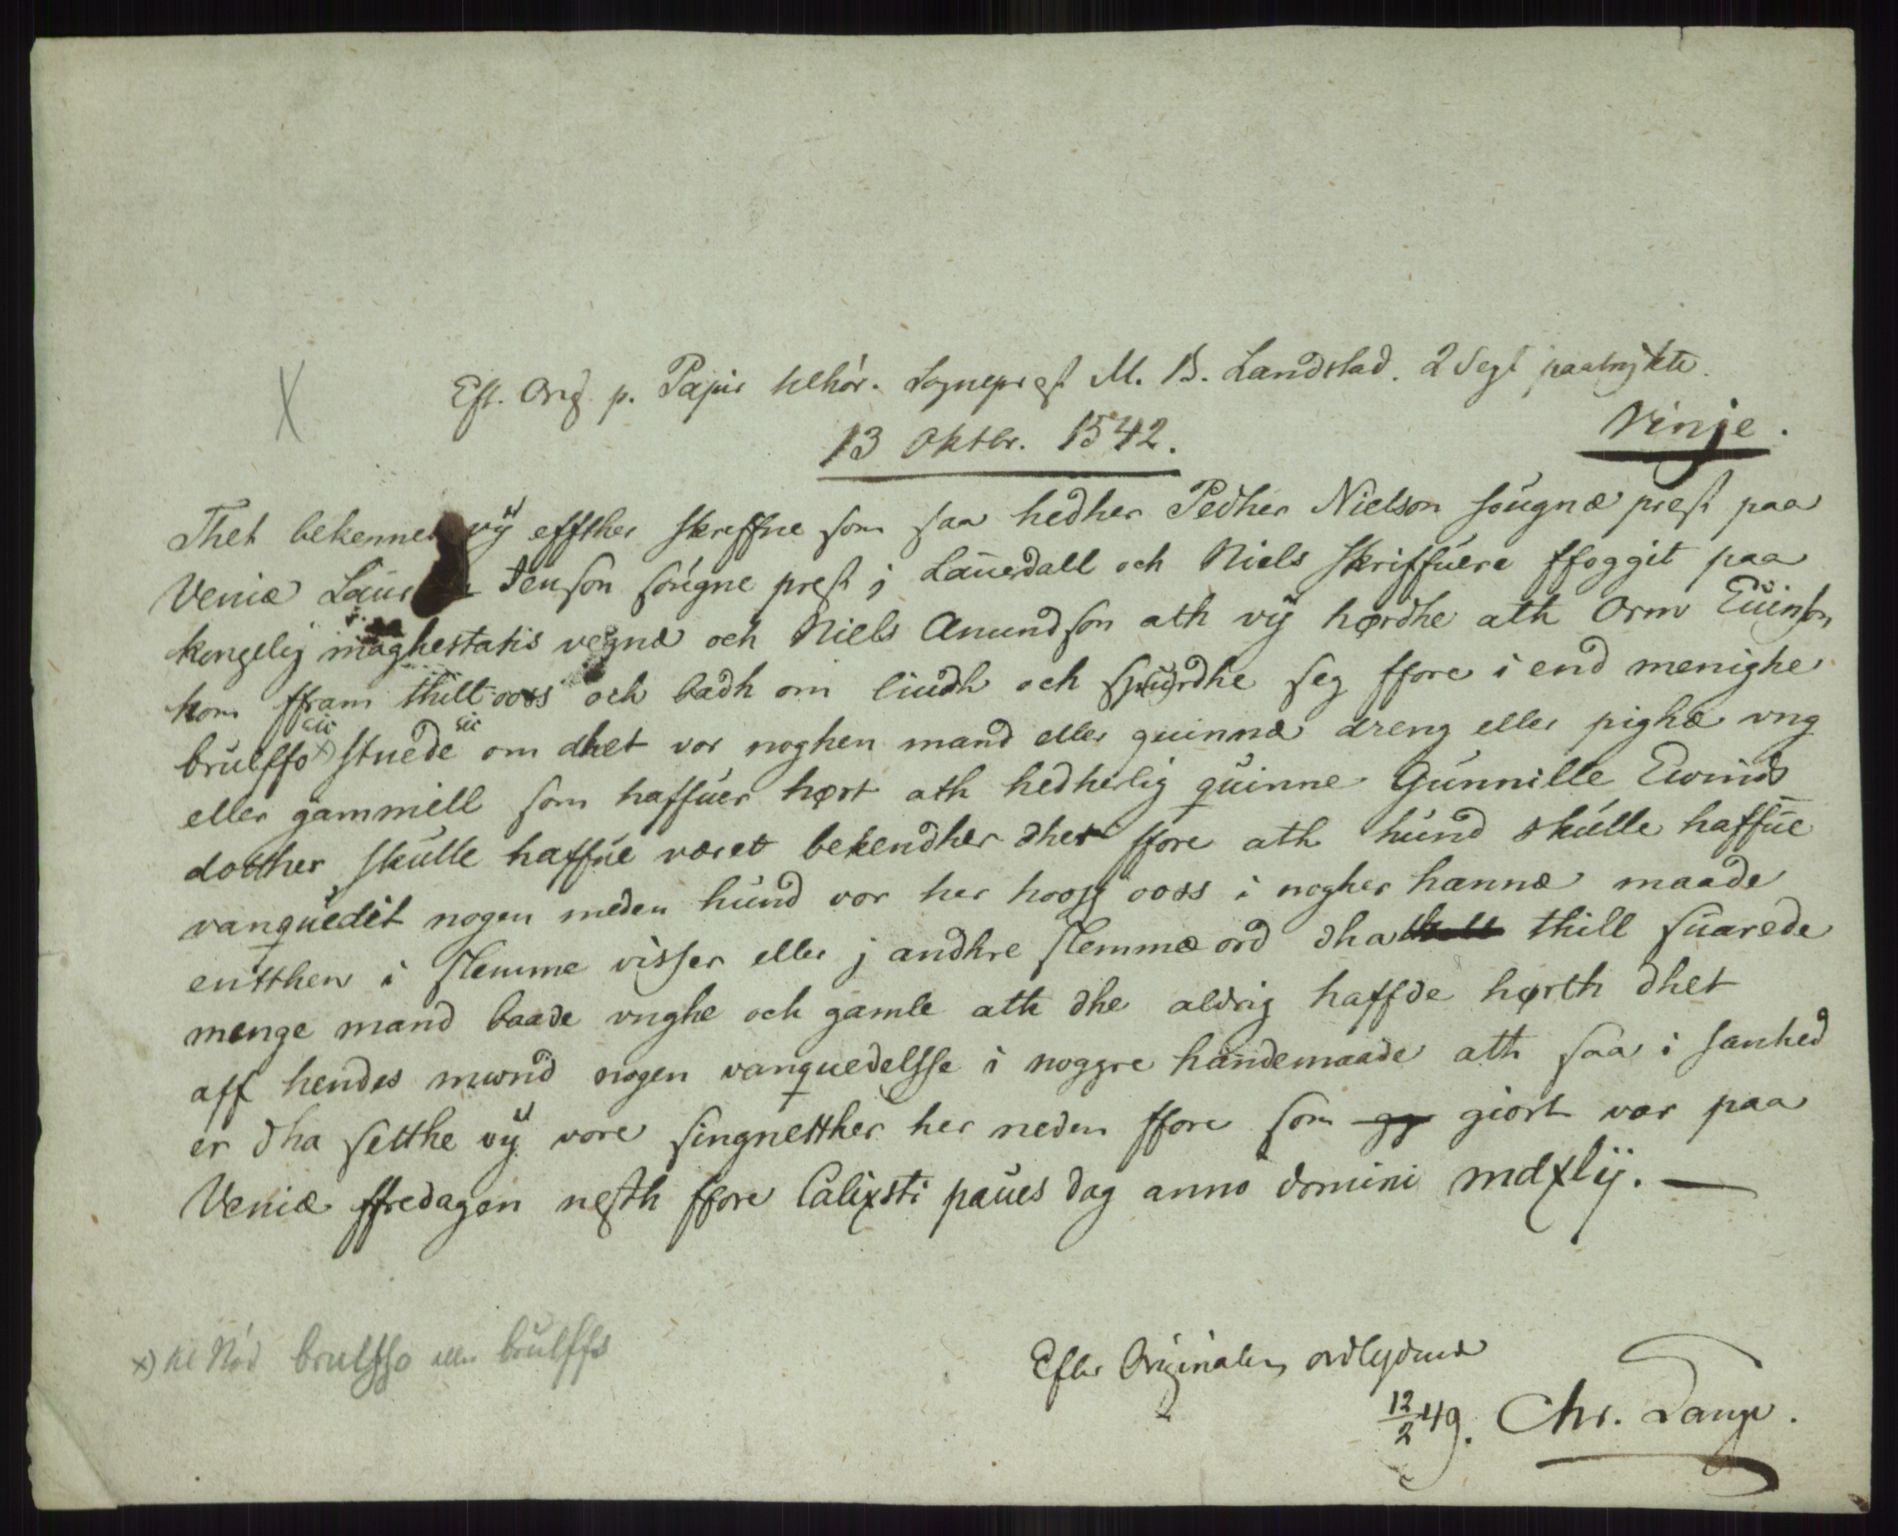 X
Eft. Orig. p. Papir tilhör. Sognepræst M. B. Landstad. 2 Segl paatrykte.
13 Oktbr. 1542.
Vinje.
Thet bekennes vÿ effther skreffne som saa hedher Pedher Nielson sougnæ prest paa
Veniæ Laur Jenson sougne prest j Lauerdall och Niels Skriffuere ffoggit paa
kongelig maghestatis vegnæ och Niels Amundson ath vÿ hørdhe ath Orm Euinson
kom ffram thill ooss och badh om liudh och spurdhe seg ffore i end menighe
sic sic
brulffso x) stuede om dhet vor noghen mand eller quinnæ dreng eller pighæ vng
eller gammell som haffuer hørt ath hedherlig quinne Gunnille Ewinds
dotther skulle haffue været bekendher dher ffore ath hund skulle haffue
vanquedit nogen meden hund vor her hooss ooss i nogher hannæ maade
entthen i slemme visser eller j andhre slemmæ ord dha thill suarede
menge mand baade vnghe och gamle ath dhe aldrig haffde hørth dhet
aff hendes mwnd nogen vanquedelsse i noggre handemaade ath saa i sanhed
er dha setthe vÿ vore singnetther her neden ffore som gg giort var paa
Veniæ ffredagen nesth ffore Calixsti paues dag anno domini mdxlij. —
x) brulsso eller brulffs
Efter Originalen ordlydende
12/2 49. Chr. Lange.